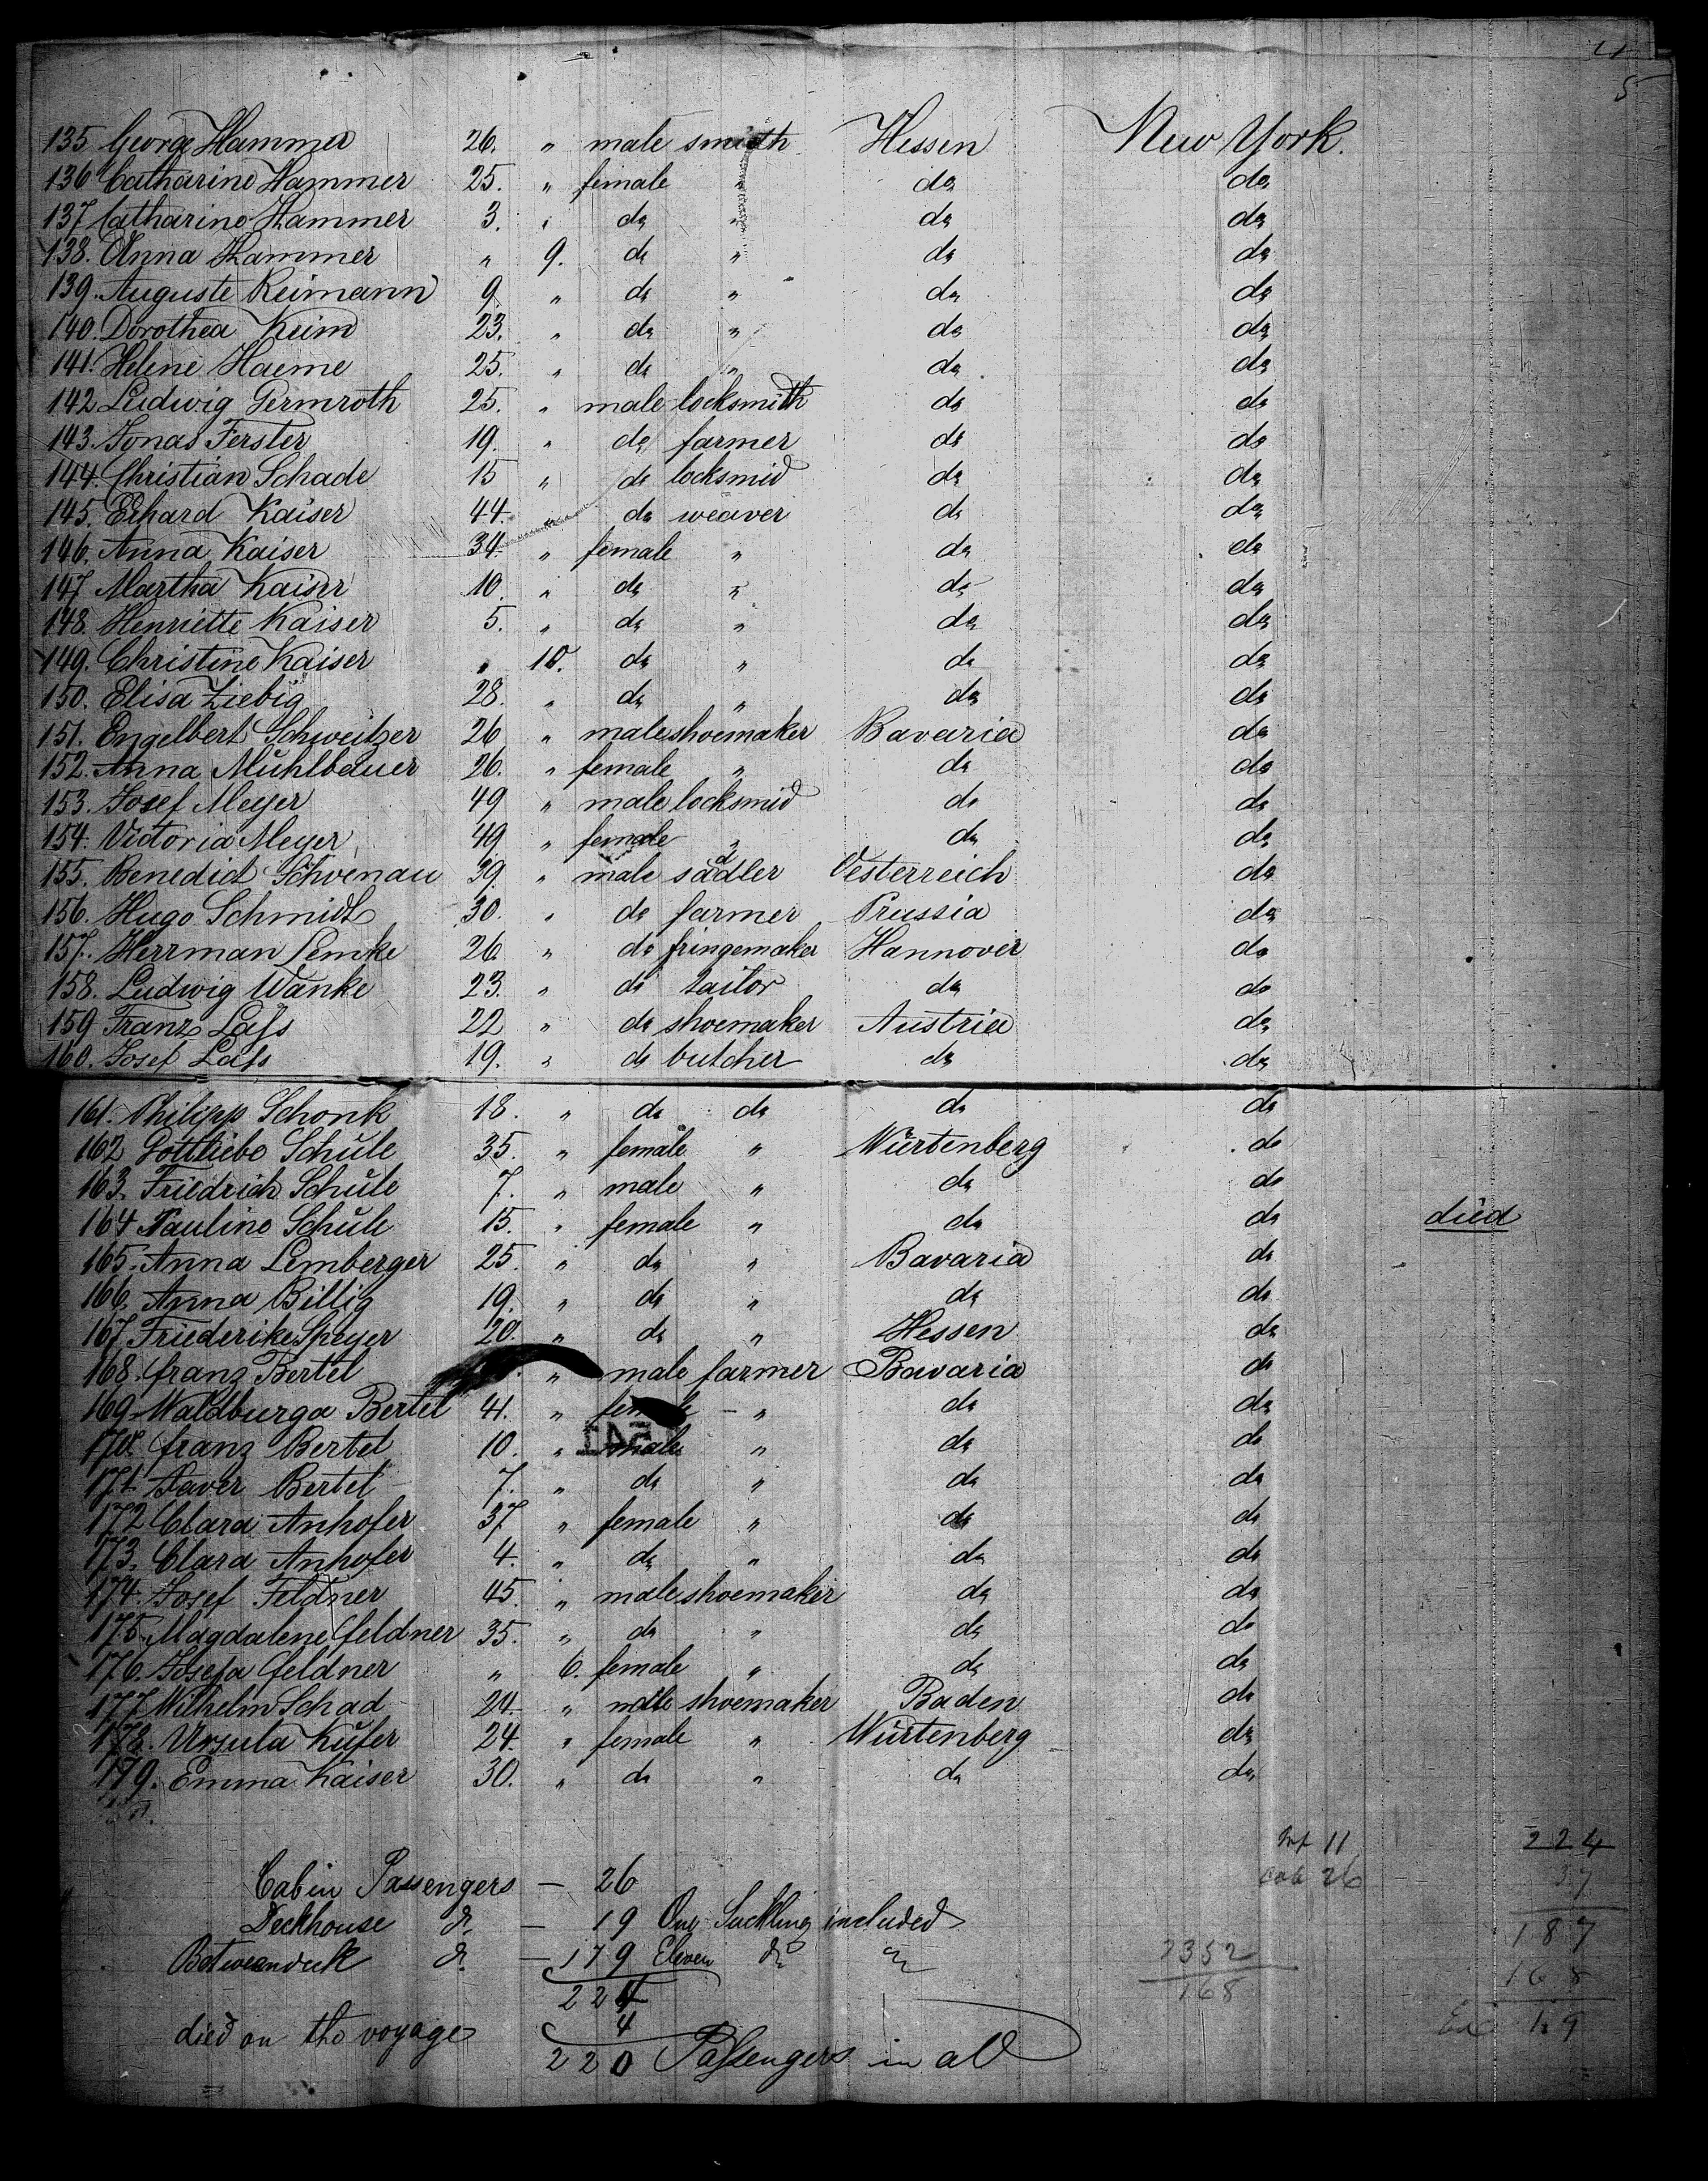 5
135 George Hammer 26. " male smith Hessen New York.
136 Catharine Hammer 25. " female " do do
137 Catharine Hammer 3. " do " do do
138. Anna Hammer " 9. do " do do
139. Auguste Reimann 9 " do " do do
140. Dorothea Keim 23. " do " do do
141. Helene Haeme 25. " do " do do
142 Ludwig Germroth 25. " male locksmith do do
143. Jonas Ferster 19. " do farmer do do
144. Christian Schade 15 " do locksmid do do
145. Erhard Kaiser 44. " do weaver do do
146. Anna Kaiser 34. " female " do do
147 Martha Kaiser 10. " do " do do
148. Henriette Kaiser 5. " do " do do
149. Christine Kaiser " 10. do " do do
150. Elisa Liebig 28. " do " do do
151. Engelbert Schweitzer 26 " male shoemaker Bavaria do
152. Anna Mühlbauer 26. " female " do do
153. Josef Meyer 49 " male locksmid do do
154. Victoria Meyer 49 " female " do do
155. Benedict Schoenau 39. " male sadler Oesterreich do
156. Hugo Schmidt 30. " do farmer Prussia do
157. Herrman Lemke 26. " do fringemaker Hannover do
158. Ludwig Wanke 23. " do tailor do do
159 Franz Laſs 22 " do shoemaker Austria do
160. Josef Laſs 19. " do butcher do do
161. Philipp Schonk 18. " do do do do
162 Gottliebe Schüle 35. " female " Würtenberg do
163. Friedrich Schüle 7. " male " do do
164 Pauline Schüle 15. " female " do do died
165. Anna Lemberger 25. " do " Bavaria do
166. Anna Billig 19. " do " do do
167 Friederike Speyer 20. " do " Hessen do
168. Franz Bertel " male farmer Bavaria do
169. Waldburga Bertel 41. " female - " do do
170. Franz Bertel 10. " male " do do
171. Xaver Bertel 7. " do " do do
172 Clara Anhofer 37 " female " do do
173. Clara Anhofer 4. " do " do do
174. Josef Feldner 45. " male shoemaker do do
175. Magdalene Feldner 35. " do " do do
176. Josefa Feldner " 6. female " do do
177 Wilhelm Schad 24. " male shoemaker Baden do
178. Ursula Küfer 24 " female " Würtenberg do
179. Emma Kaiser 30. " do " do do
Inf 11 224
Cabin Passengers — 26 Cab 26 37
Deckhouse do — 19 One Suckling included 187
Betweendeck do — 179 Eleven do do 2352 168
224 168
died on the voyage 4 19
220 Paſsengers in all